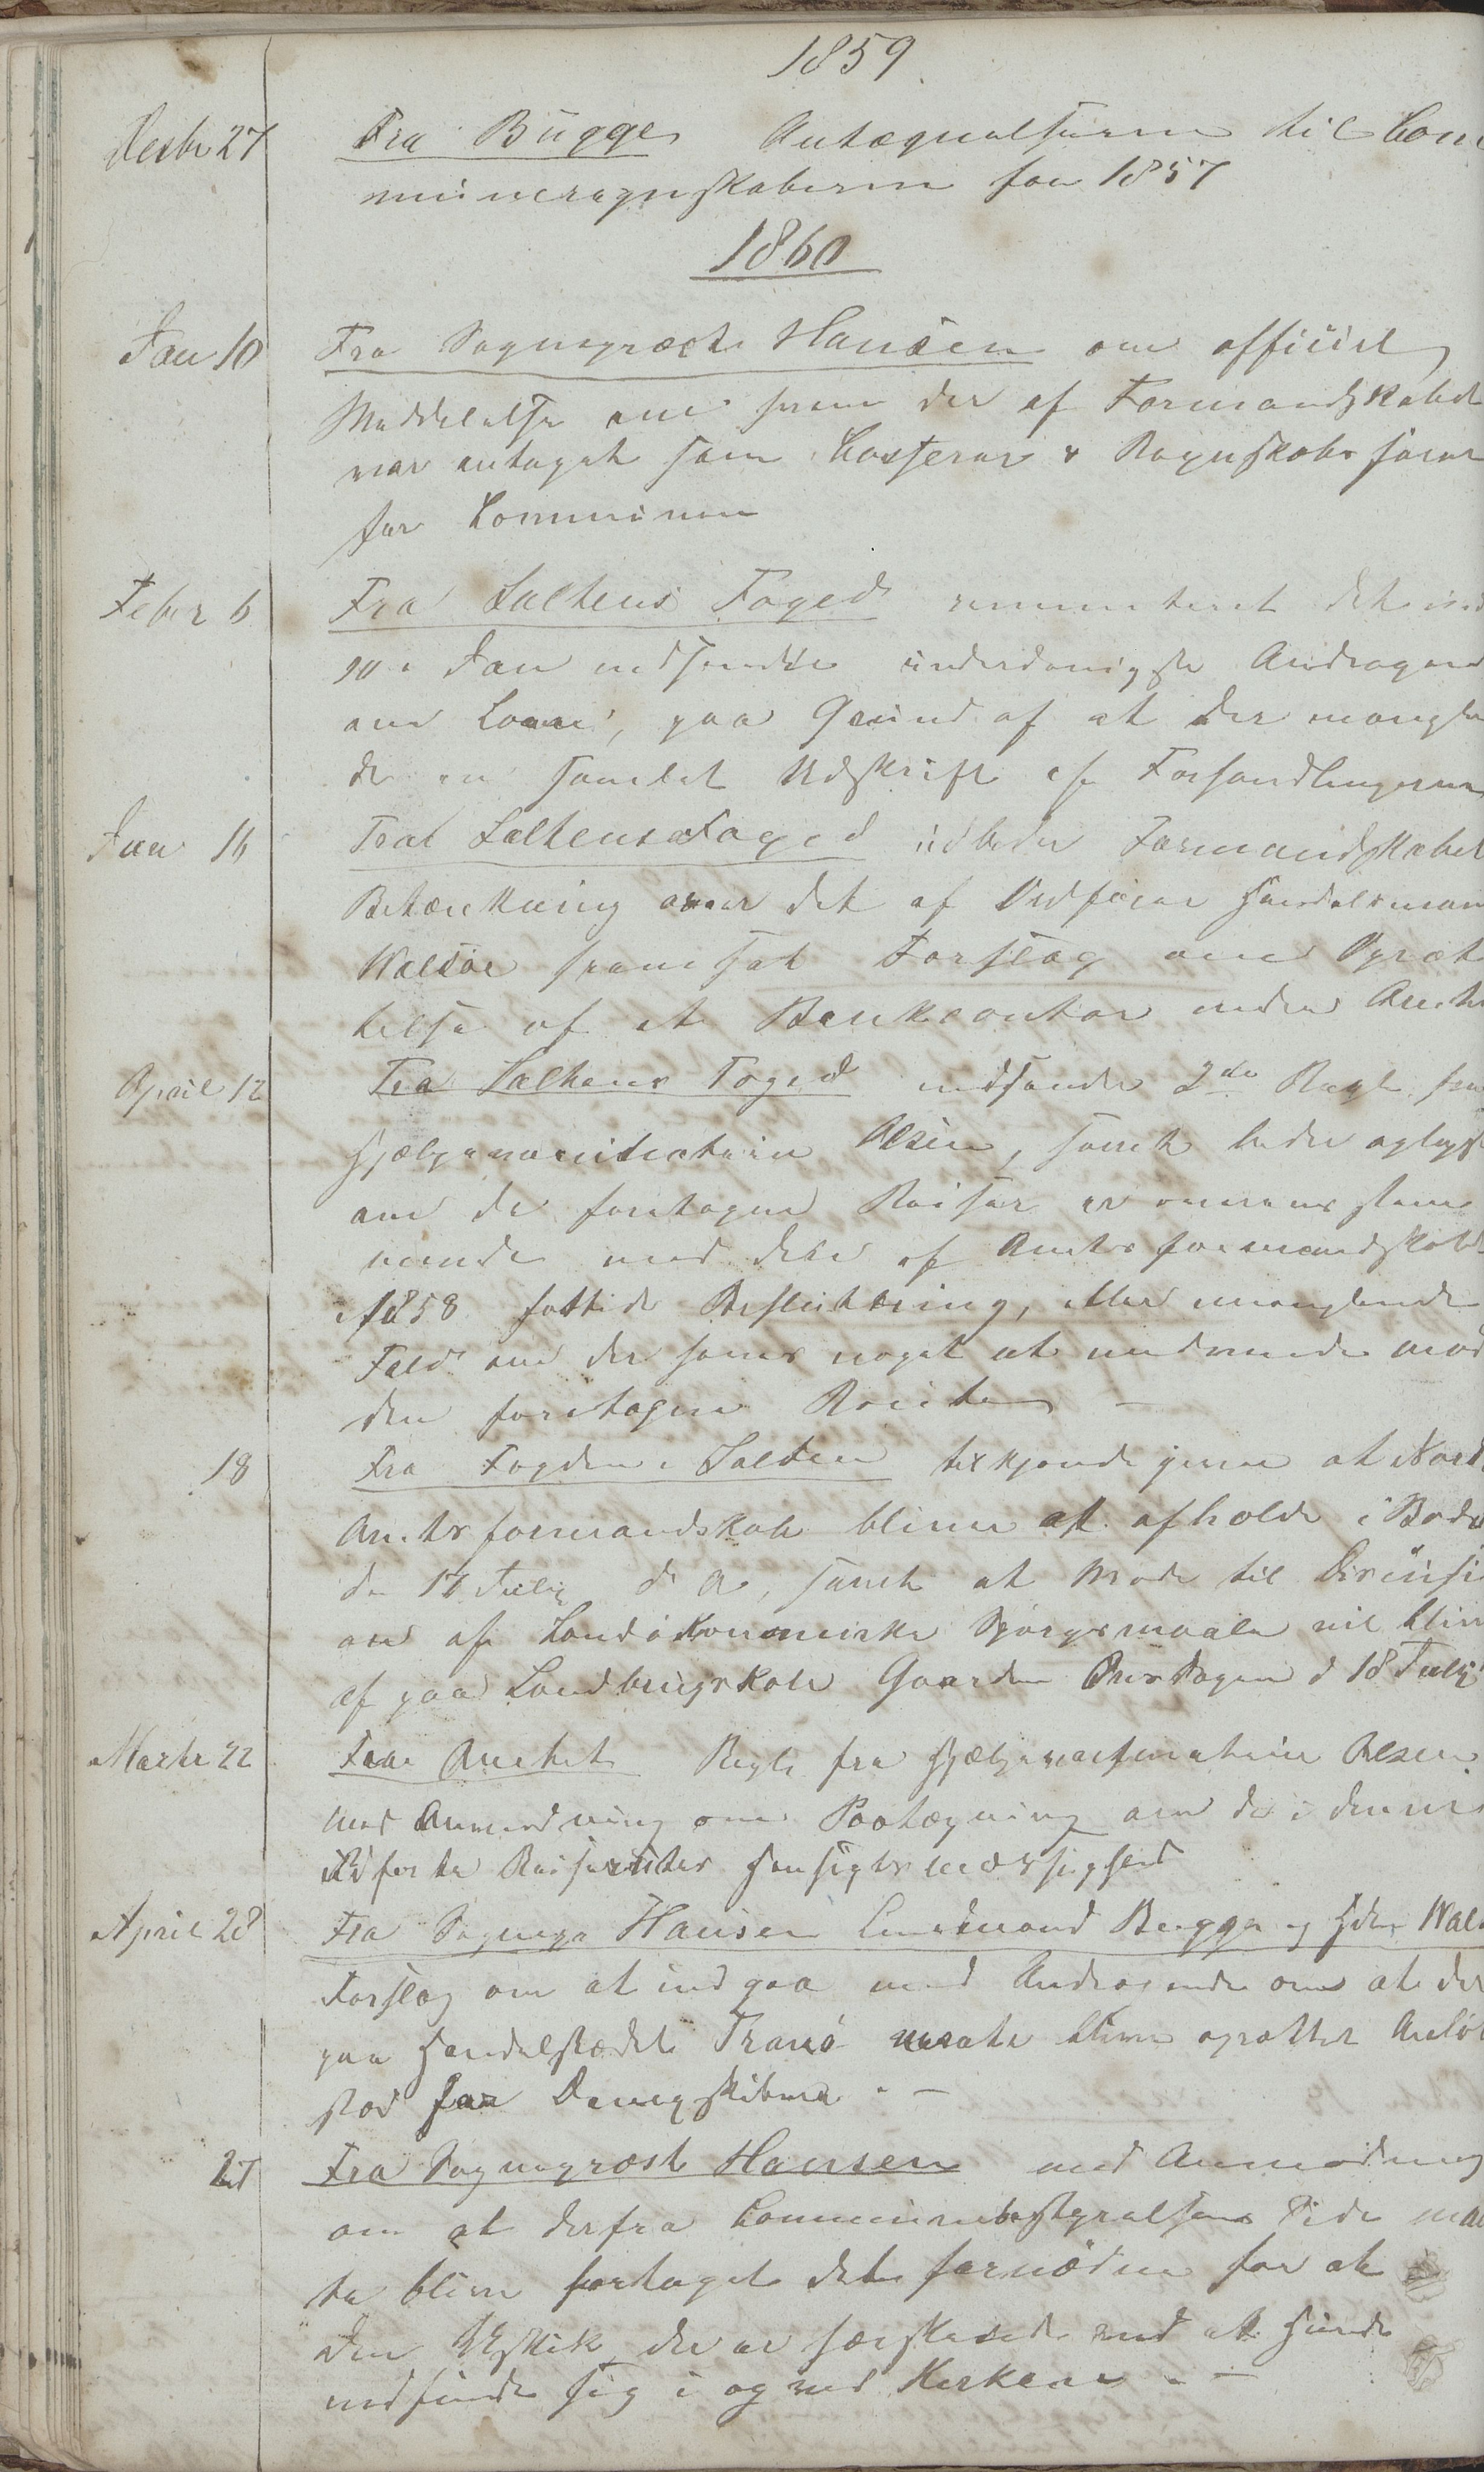 1859
Decbr 27 Fra Bugge Antegnelserne til Com
muneregnskaberne for 1857
1860
Jan 10 Fra Sognepræst Hansen om officiel
Meddelelse om hvem der af Formandskabet
var antaget som Casserer & Regnskabsfører
for Communen
Febr 6 Fra Saltens Foged det
10 Jan indsendte underdanigste Andragend
om Laan, paa Grund af at der mangle
de en samlet Udskrift af Forhandlingerne
Jan 16 Fra Saltens Foged udbeder Formandskabet
Betænkning over det af Ordfører Handelsmand
Walsøe fremsat Forslag om Opret
telse af et Bankcontor inden Amtet
April 12 Fra Saltens Foged indsender 2de Regl fra
Hjelpevaccinatrice Olsen, samt beder oplyst
om de foretagne Reiser er overensstem
mende med den af Amtsformandskabet
i 1858 fattede Beslutning, eller manglende
Fald om der haves noget at indvende mod
den foretagne Route
18 Fra Fogden i Salten tilkjendegiver at Nord
Amtsformandskab bliver at afholde i Bodø
den 17 Julij d A, samt at Møde til Discussi
on af Landøkonomiske Spørgsmaale vil blive
af paa Landbrugskole Gaarden Onsdagen d 18 Julij
Marts 22 Fra Amtet Regl fra Hjelpevaccinatrice Olsen
med Anmodning om Paategning om de i denne
anførte Reiserouters Hensigtsmæssighed
April 28 Fra Sognepr Hansen Lensmand Bugge og Hdlm Wals
Forslag om at indgaa med Andragende om at der
paa Handelsstedet Tranø maatte blive oprettet Anløb
sted for Dampskibene. —
27 Fra Sognepræst Hansen med Anmodning
om at der fra Communebestyrelsens Side maa
te blive foretaget det fornødne for at
den Uskik, der er herskende med at Hunde
indfinde sig i og ved Kirkerne —